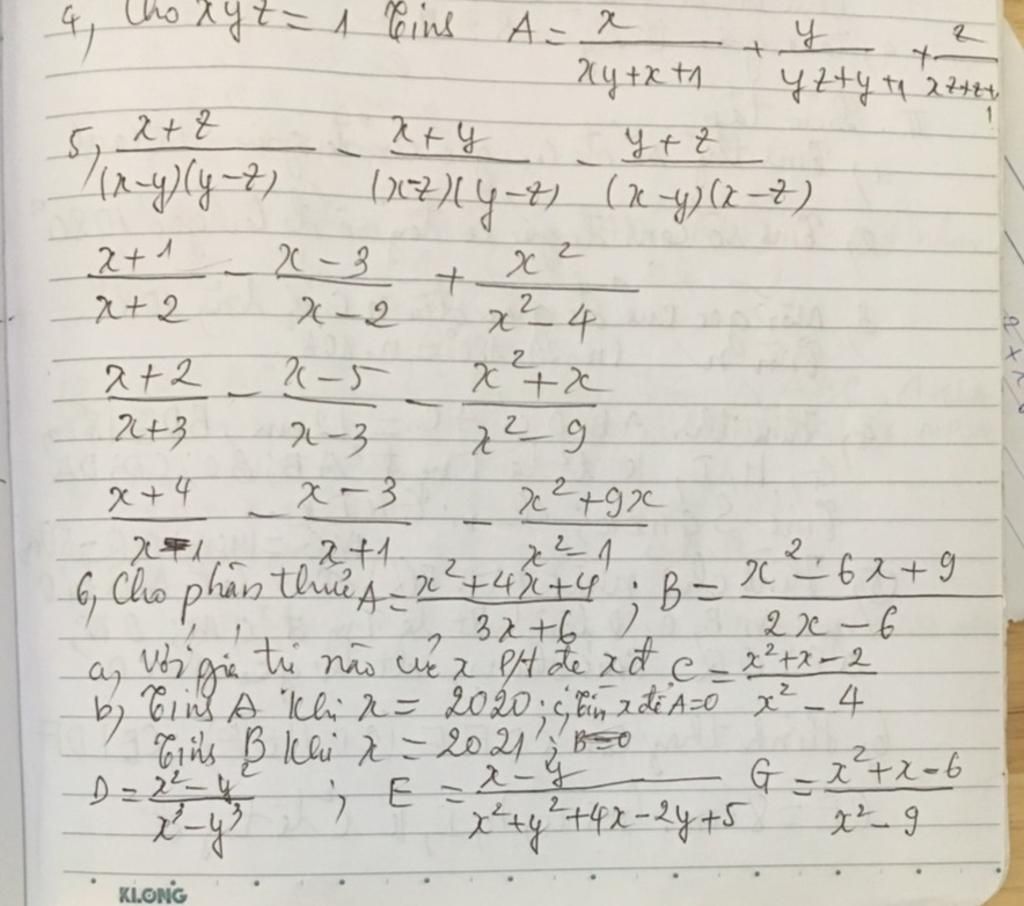 4, Cho xyz = 1 Tính A = x/(xy+x+1) + y/(yz+y+1) + z/(xz+z+1)
5, (x+z)/((x-y)(y-z)) - (x+y)/((x-z)(y-z)) - (y+z)/((x-y)(x-z))
(x+1)/(x+2) - (x-3)/(x-2) + x²/(x²-4)
(x+2)/(x+3) - (x-5)/(x-3) - (x²+x)/(x²-9)
(x+4)/(x-1) - (x-3)/(x+1) - (x²+9x)/(x²-1)
6, Cho phân thức A = (x²+4x+4)/(3x+6) ; B = (x²-6x+9)/(2x-6)
a, Với giá trị nào của x PH để xđ C = (x²+x-2)/(x²-4)
b, Tính A khi x = 2020 ; c, Tìm x để A=0
Tính B khi x = 2021 ; B=0
D = (x²-y²)/(x³-y³) ; E = (x-y)/(x²+y²+4x-2y+5) G = (x²+x-6)/(x²-9)
KLONG